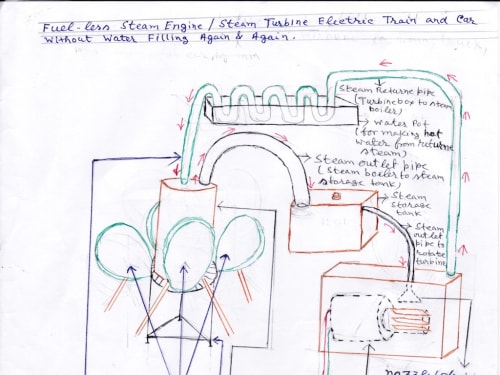 Fuel-less Steam Engine / Steam Turbine Electric Train and Car
Without Water Filling Again & Again.
Steam Returne pipe
(Turbine box to steam
boiler)
Water Pot
(for making hot
water from returne
steam)
Steam outlet pipe
(Steam boiler to steam
storage tank)
Steam
storage
tank
Steam
outlet
pipe to
rotate
turbine